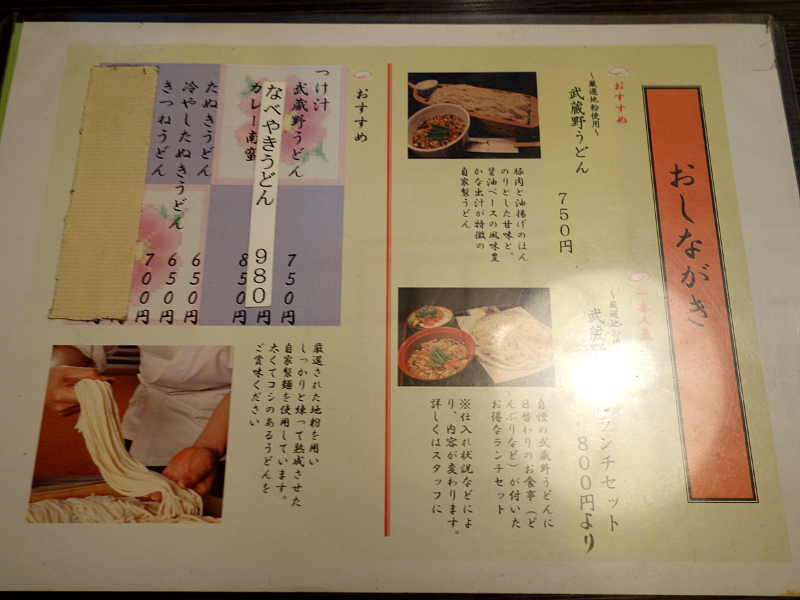 おしながき
おすすめ
～厳選地粉使用～
武蔵野うどん
750円
豚肉と油揚げのほん
のりとした甘味と。
醤油ベースの風味豊
かな出汁が特徴の
自家製うどん
一番人気
～厳選地粉
武蔵野
ランチセット
800円より
自慢の武蔵野うどんに
日替わりのお食事（ど
んぶりなど）が付いた
お得なランチセット
※仕入れ状況などによ
り、内容が変わります。
詳しくはスタッフに
おすすめ
つけ汁
武蔵野うどん 750円
なべやきうどん 980円
カレー南蛮 850円
たぬきうどん 650円
冷やしたぬきうどん 650円
きつねうどん 700円
厳選された地粉を用い
しっかりと練って熟成させた
自家製麺を使用しています。
太くてコシのあるうどんを
ご賞味ください